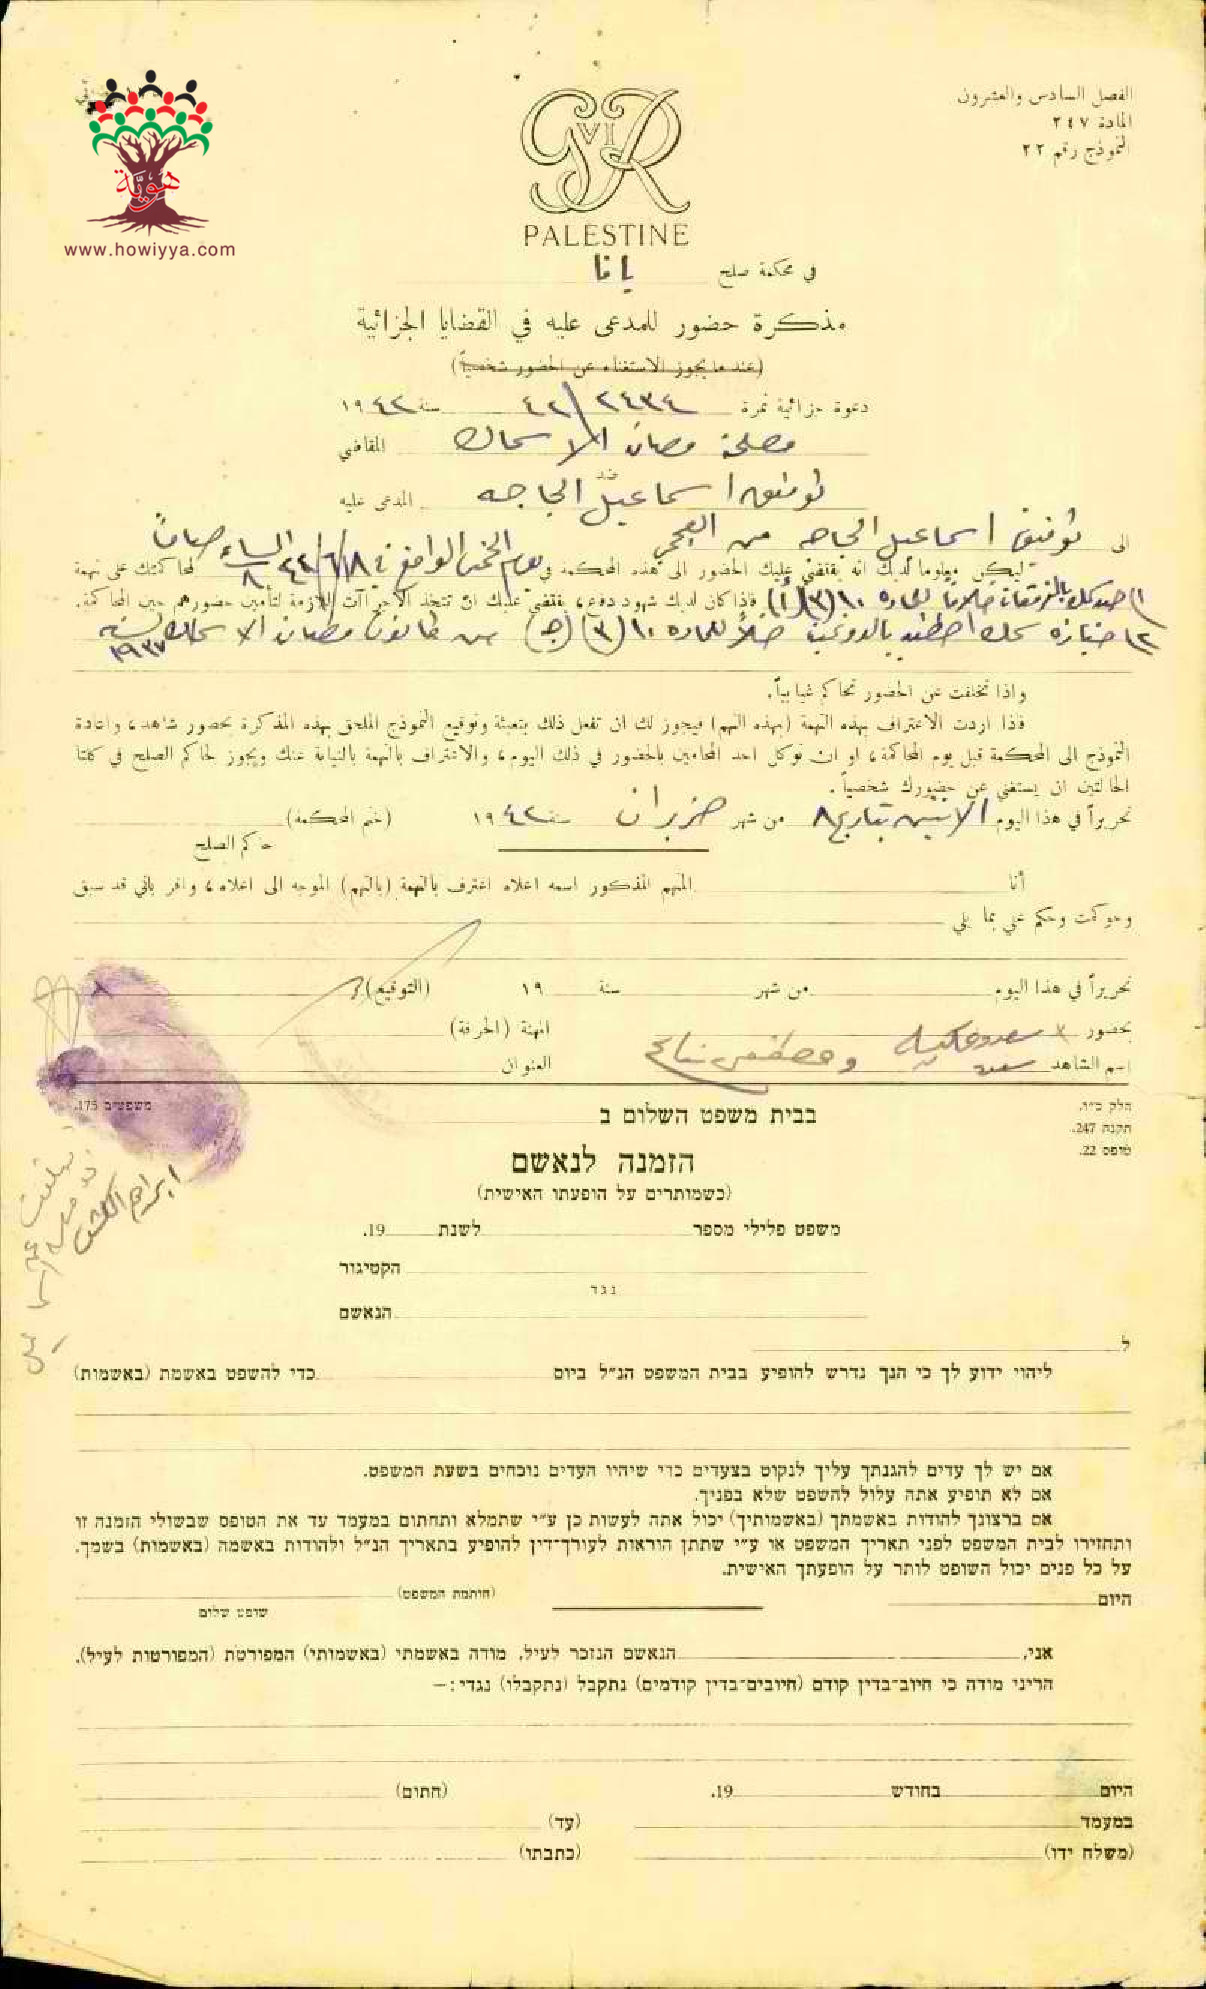 الفصل السادس والعشرون
المادة ٢٤٧
النموذج رقم ٢٢
هوية
www.howiyya.com
G VI R
PALESTINE
في محكمة صلح يافا
مذكرة حضور للمدعى عليه في القضايا الجزائية
(عند ما يجوز الاستغناء عن الحضور شخصياً)
دعوة جزائية نمرة ٢٤٣٤/٤٢ سنة ١٩٤٢
مصلحة مصائد الاسماك المقاضي
ضد
توفيق اسماعيل الجاجه المدعى عليه
الى توفيق اسماعيل الجاجه من
ليكن معلوما لديك انه يقتضي عليك الحضور الى هذه المحكمة في يوم الخميس الواقع في ١٨/٦/٤٢ الساعة ٨ صباحاً لمحاكمتك على تهمة
(١) صيد سمك بالمفرقعات خلافاً للمادة ١٠(٣)(أ) فإذا كان لديك شهود دفع، يقتضي عليك ان تتخذ الاجراآت اللازمة لتأمين حضورهم حين المحاكمة.
(٢) حيازة سمك اصطيد خلافاً للمادة ١٠(٣)(ج) من قانون مصائد الاسماك لسنة ١٩٣٧
واذا تخلفت عن الحضور تحاكم غيابياً.
فاذا اردت الاعتراف بهذه التهمة (بهذه التهم) فيجوز لك ان تفعل ذلك بتعبئة وتوقيع النموذج الملحق بهذه المذكرة بحضور شاهد، واعادة
النموذج الى المحكمة قبل يوم المحاكمة، او ان توكل احد المحامين بالحضور في ذلك اليوم، والاعتراف بالتهمة بالنيابة عنك ويجوز لحاكم الصلح في كلتا
الحالتين ان يستغني عن حضورك شخصياً.
تحريراً في هذا اليوم الاثنين بتاريخ ٨ من شهر حزيران سنة ١٩٤٢ (ختم المحكمة)
حاكم الصلح
أنا المتهم المذكور اسمه اعلاه اعترف بالتهمة (بالتهم) الموجه الى اعلاه، واقر باني قد سبق
وحوكمت وحكم علي بما يلي
تحريراً في هذا اليوم من شهر سنة ١٩ (التوقيع)
بحضور المهنة (الحرفة)
اسم الشاهد العنوان
חלק כ״ו.
תקנה 247.
טופס 22.
משפטים 175.
בבית משפט השלום ב
הזמנה לנאשם
(כשמותרים על הופעתו האישית)
משפט פלילי מספר לשנת 19.
הקטיגור
נגד
הנאשם
ל
ליהוי ידוע לך כי הנך נדרש להופיע בבית המשפט הנ״ל ביום כדי להשפט באשמת (באשמות)
אם יש לך עדים להגנתך עליך לנקוט בצעדים כדי שיהיו העדים נוכחים בשעת המשפט.
אם לא תופיע אתה עלול להשפט שלא בפניך.
אם ברצונך להודות באשמתך (באשמותיך) יכול אתה לעשות כן ע״י שתמלא ותחתום במעמד עד את הטופס שבשולי הזמנה זו
ותחזירו לבית המשפט לפני תאריך המשפט או ע״י שתתן הוראות לעורך־דין להופיע בתאריך הנ״ל ולהודות באשמה (באשמות) בשמך.
על כל פנים יכול השופט לותר על הופעתך האישית.
היום (חותמת המשפט)
שופט שלום
אני, הנאשם הנזכר לעיל, מודה באשמתי (באשמותי) המפורטת (המפורטות לעיל).
הריני מודה כי חיוב־בדין קודם (חיובים־בדין קודמים) נתקבל (נתקבלו) נגדי:—
היום בחודש 19. (חתום)
במעמד (עד)
(משלח ידו) (כתבתו)